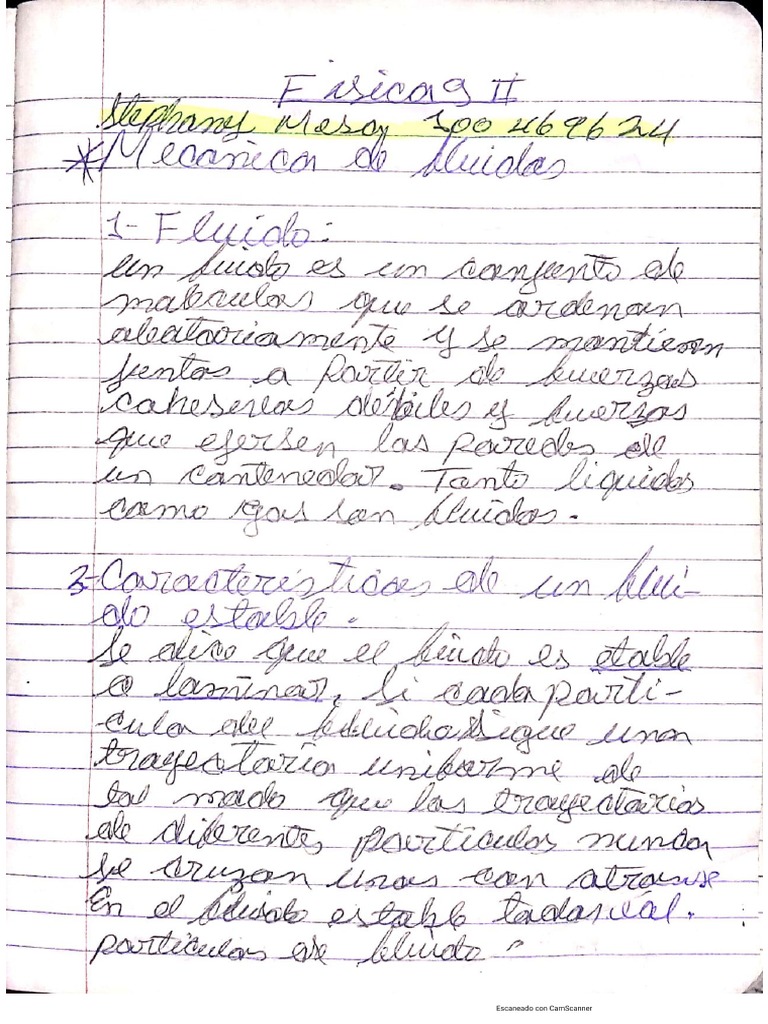 Fisicas II
Stephany Mesa 100469624
*Mecanica de fluidos
1- Fluido:
un fluido es un conjunto de
moleculas que se ordenan
aleatoriamente y se mantienen
juntas a partir de fuerzas
cohesivas débiles y fuerzas
que ejersen las paredes de
un contenedor. Tanto liquidos
como gas son fluidos.
2-Características de un flui-
do estable.
Se dice que el fluido es etable
o laminar, Si cada parti-
-cula del fluido Sigue una
trayectoria uniforme de
tal modo que las trayectorias
de diferentes particulas nunca
se cruzan unas con
En el fluido estable todas
particulas de fluido
Escaneado con CamScanner